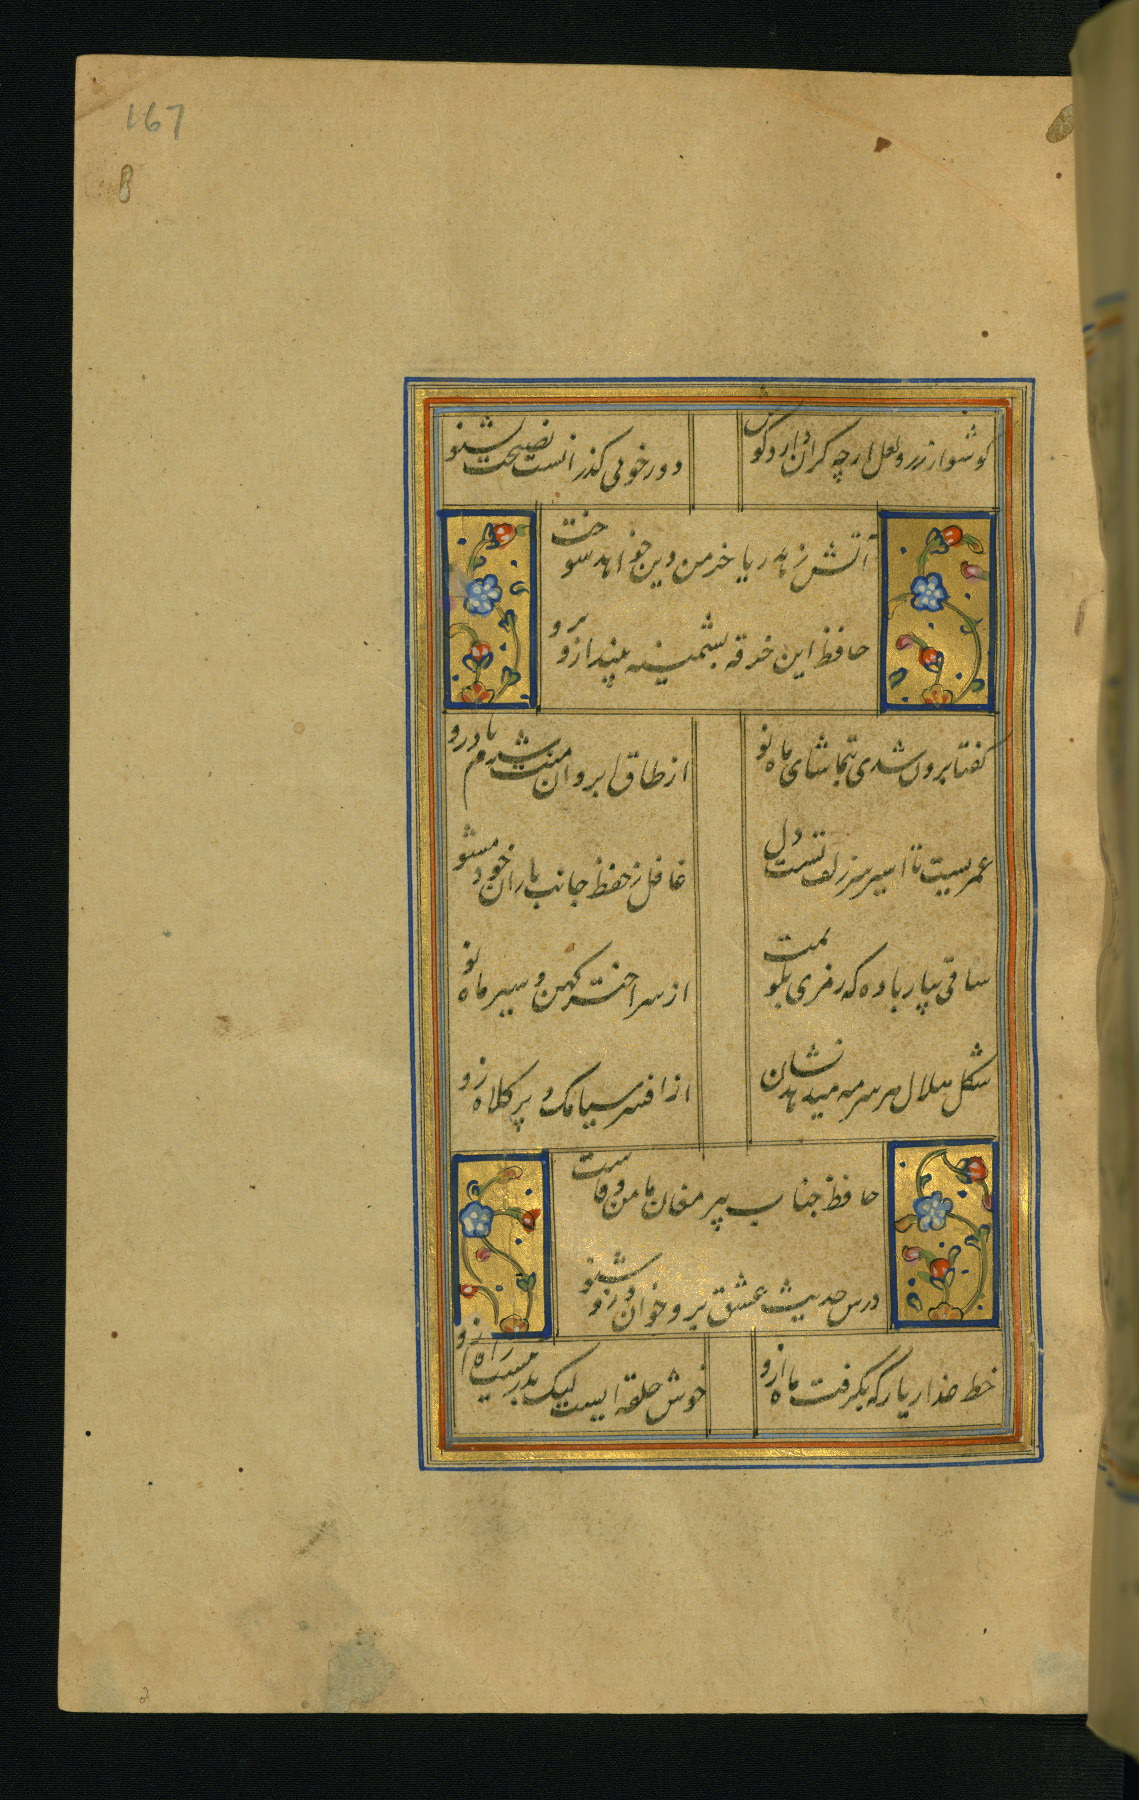 167
کوشوار زر و لعل ارچه کران دارد کوش
دور خوبی کذرانست نصیحت بشنو
آتش زهد ریا خرمن دین خواهد سوخت
حافظ این خرقه پشمینه بینداز و برو
کفتا برون شدی بتماشای ماه نو
از طاق ابروان منت شرم باد رو
عمریست تا اسیر سر زلف تست دل
غافل ز حفظ جانب یاران خود مشو
ساقی بیار باده که رمزی بگویمت
از سر اختر کهن و سیر ماه نو
شکل هلال هر سر مه میدهد نشان
از افسر سیامک و پر کلاه زو
حافظ جناب پیر مغان مامن وفاست
درس حدیث عشق برو خوان و زو شنو
خط عذار یار که بکرفت ماه ازو
خوش حلقه ایست لیک بدر نیست راه ازو